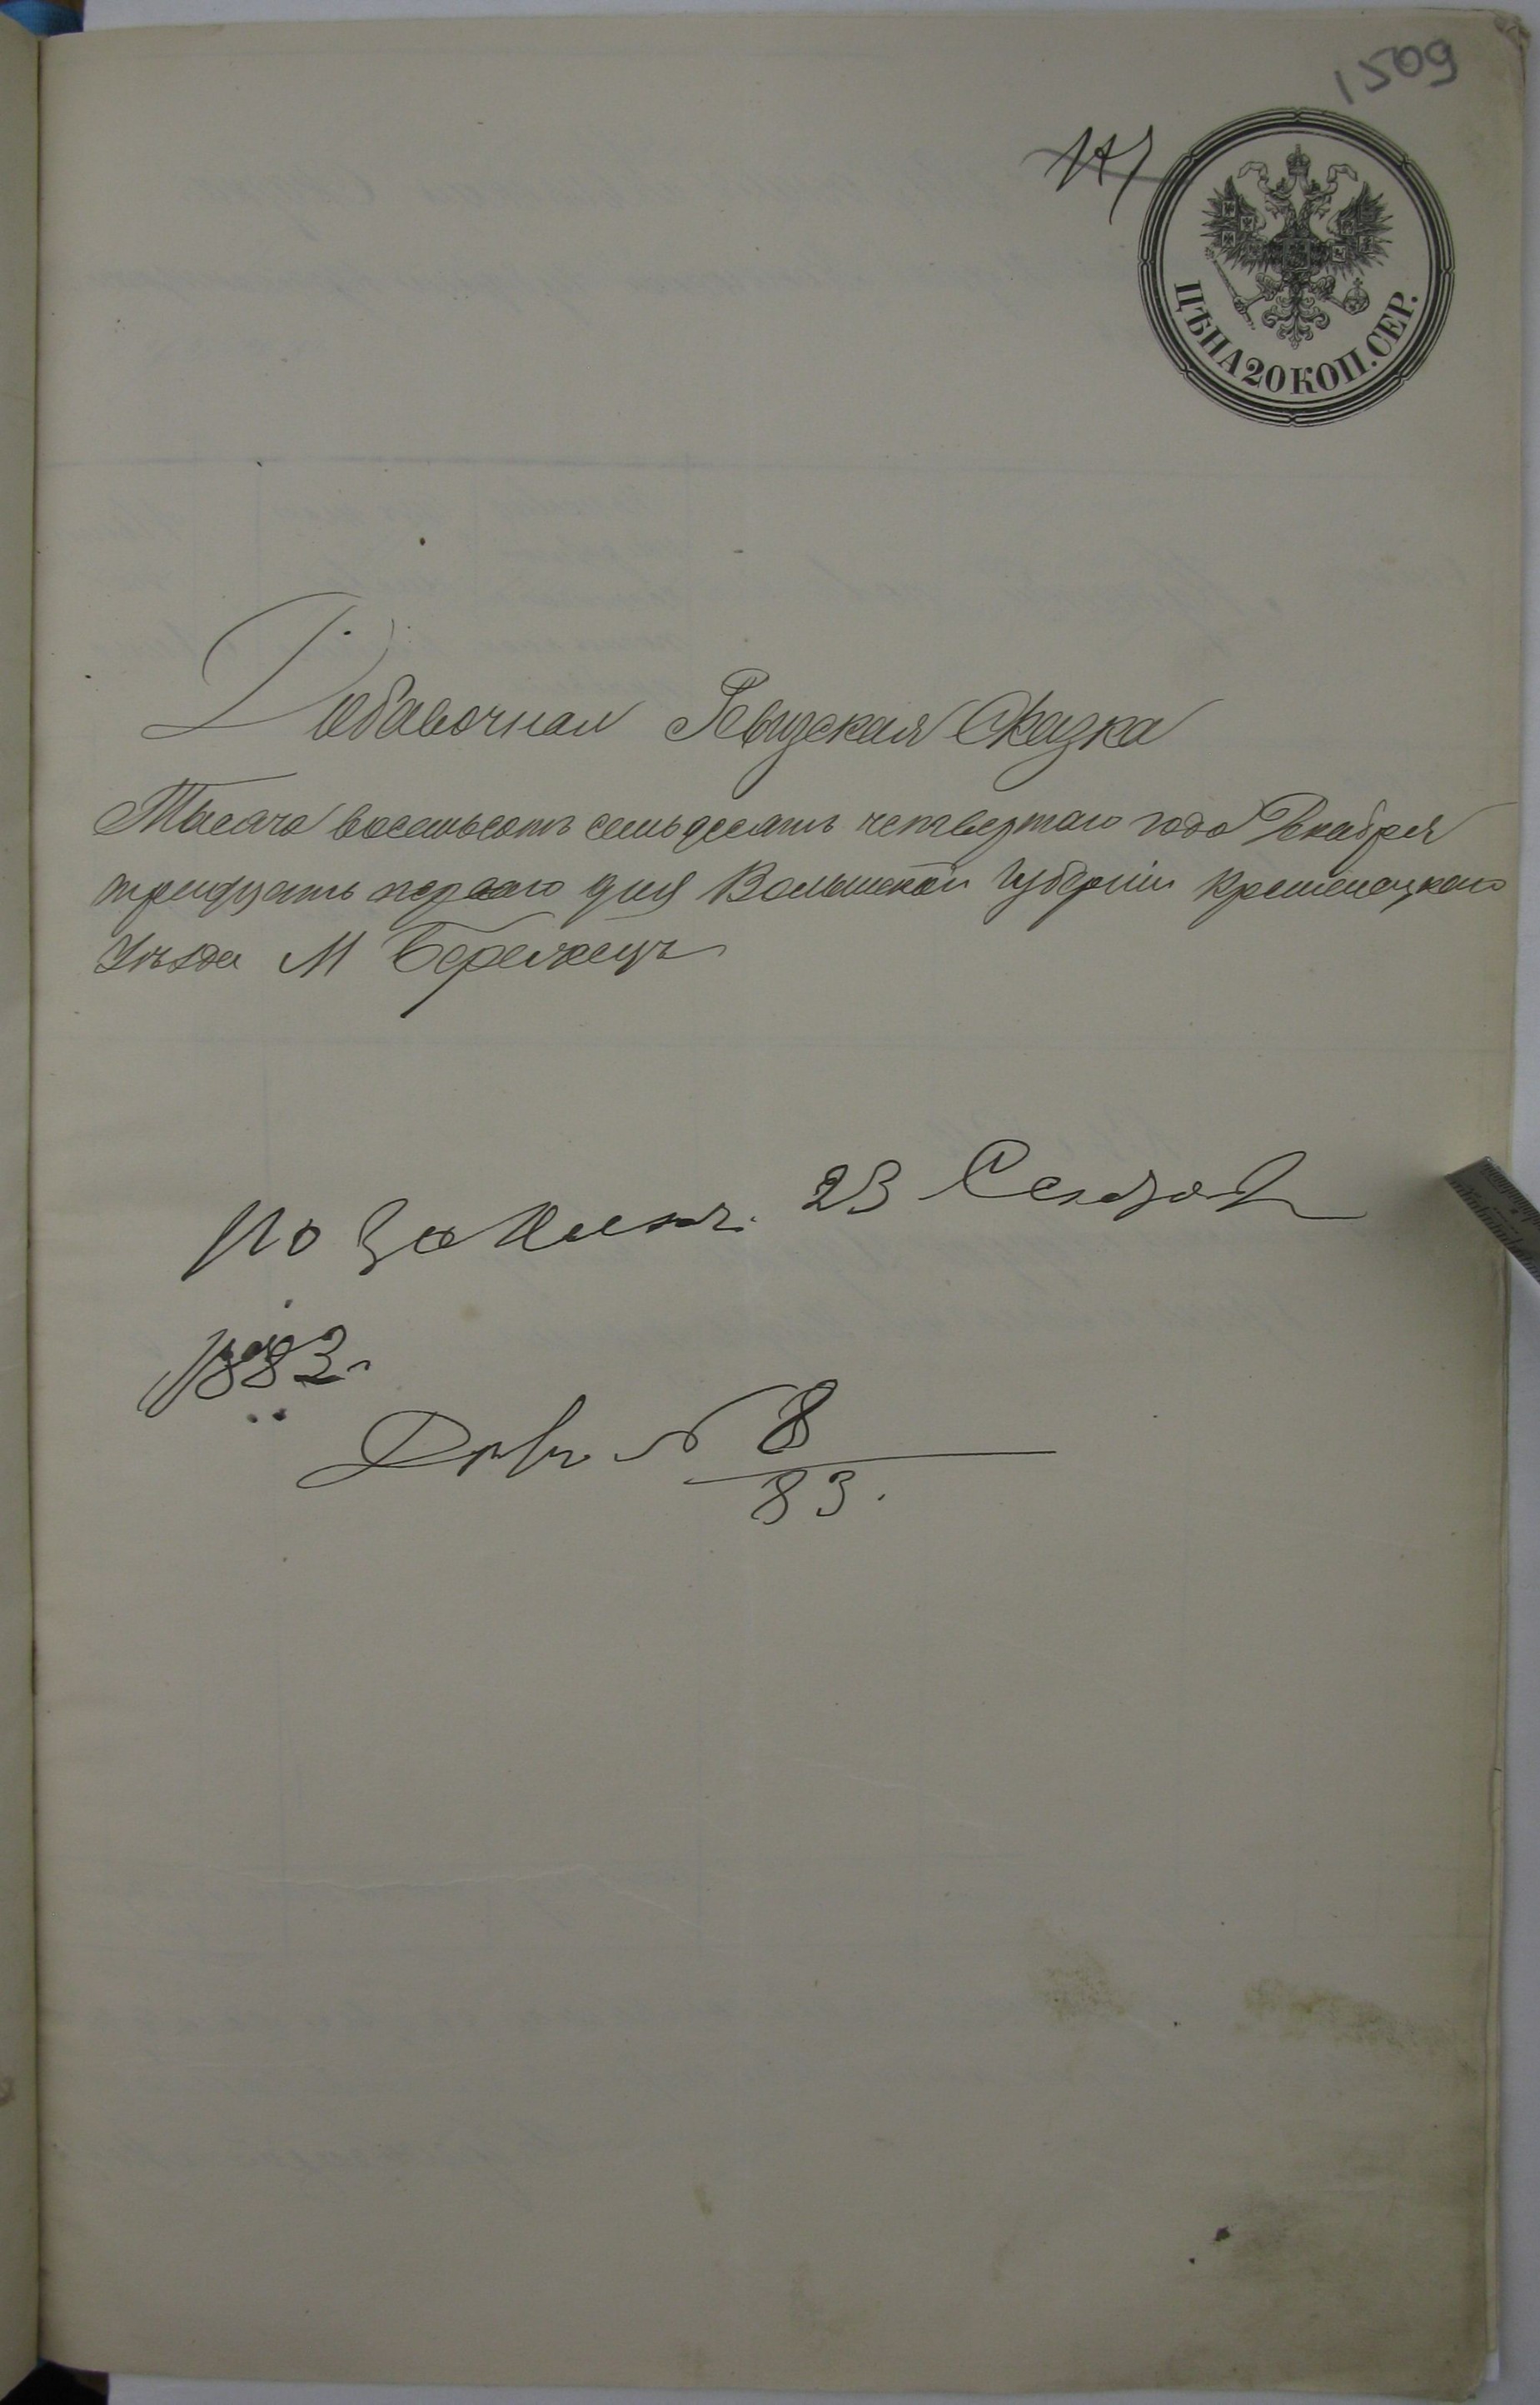 1509
ЦѢНА 20 КОП. СЕР.
Добавочная Ревизская Сказка
Тысяча восемьсот семьдесять четвертаго года Декабря
тридцать перваго дня Волынской Губерніи Кременецкаго
Уѣзда М Бережецъ
По 23
1883г.
№ 8
83.